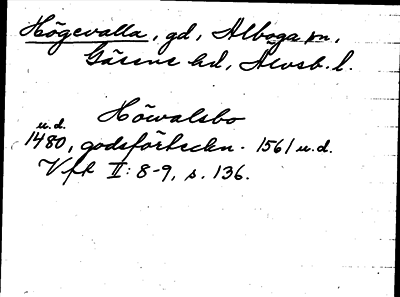 Högevalla, gd, Alboga sn,
Gäsene hd, Älvsb. l.
Höwalsbo
u.d.
1480, godsförteckn. 1561 u.d.
Vft II: 8-9, s. 136.